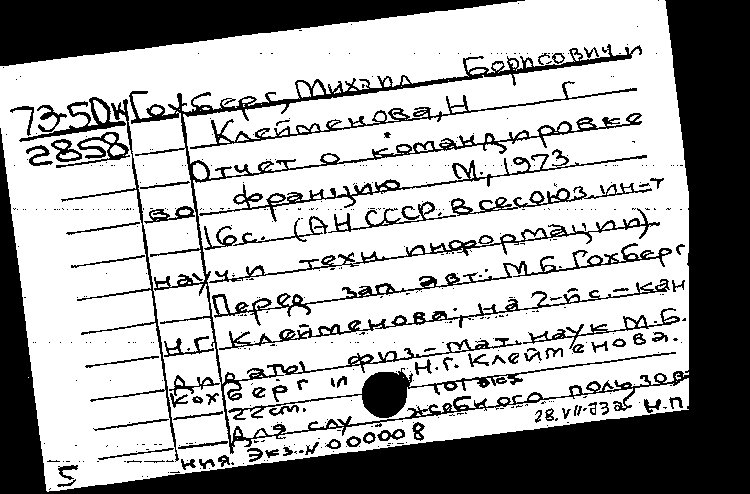 73-50К Гохберг, Михаил Борисович и
2858 Клейменова, Н Г
Отчет о командировке
во францию М., 1973.
16с. (АН СССР. Всесоюз. ин-т
науч. и техн. информации).
Перед загл. авт.: М.Б. Гохберг,
Н.Г. Клейменова; на 2-й с. – кан
дидаты физ.-мат. наук М.Б.
Кохберг и Н.Г. Клейменова.
22см.
Для слу жебного пользова
ния. Экз. N 000008 28.VII-73г Н.П.
5